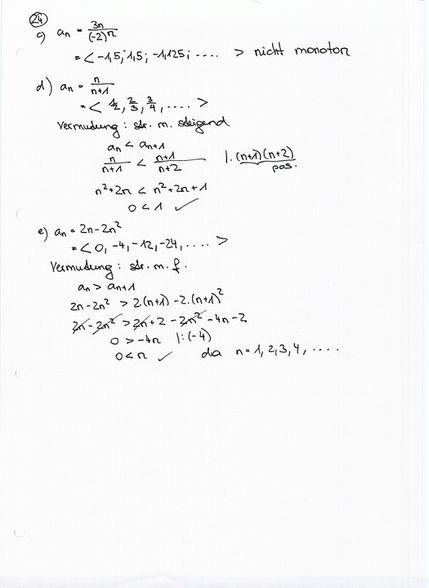 24
c) aₙ = 3n/(-2)ⁿ
= < -1,5; 1,5; -1,125; .... > nicht monoton
d) aₙ = n/(n+1)
= < 1/2, 2/3, 3/4, .... >
Vermutung: str. m. steigend
aₙ < aₙ₊₁
n/(n+1) < (n+1)/(n+2) |·(n+1)(n+2)
pos.
n² + 2n < n² + 2n + 1
0 < 1 ✓
e) aₙ = 2n - 2n²
= < 0, -4, -12, -24, .... >
Vermutung: str. m. f.
aₙ > aₙ₊₁
2n - 2n² > 2(n+1) - 2·(n+1)²
2n - 2n² > 2n + 2 - 2n² - 4n - 2
0 > -4n |:(-4)
0 < n ✓ da n = 1, 2, 3, 4, ....